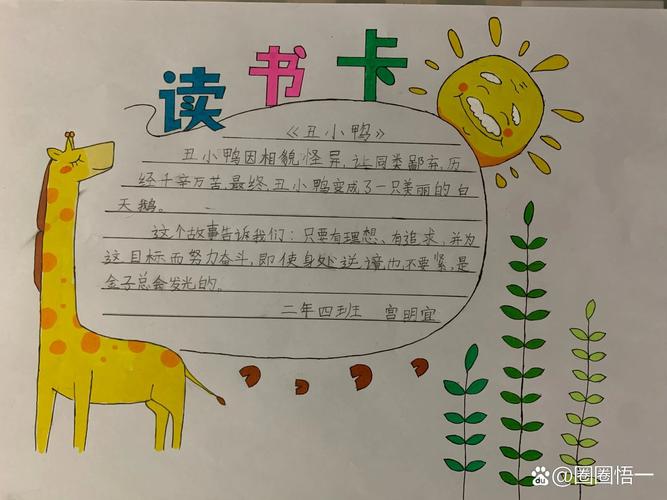 读书卡
《丑小鸭》
丑小鸭因相貌怪异,让同类鄙弃,历
经千辛万苦,最终,丑小鸭变成了一只美丽的白
天鹅。
这个故事告诉我们:只要有理想、有追求,并为
这目标而努力奋斗,即使身处逆境巾,不要紧,是
金子总会发光的。
二年四班 宫明宜
Baidu @圈圈悟一